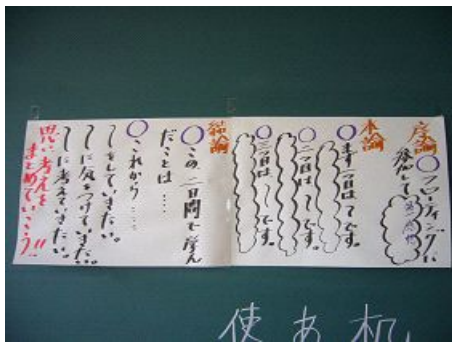 序論
○フローティングに
参加して
本論
○まず一つ目は〜です。
○二つ目は〜です。
○三つ目は〜です。
結論
○この二日間で学ん
だことは……
○これから……
〜をしていきたい。
〜に気をつけていきたい。
〜に考えていきたい。
思い、考えを
まとめていこう!!
机
あ
使